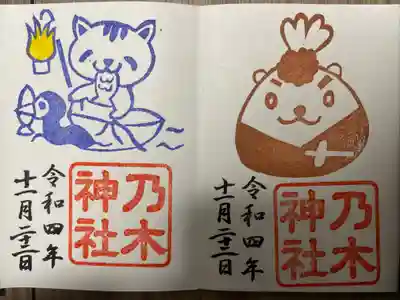 乃木
神社
令和四年
十一月二十二日
乃木
神社
令和四年
十一月二十二日